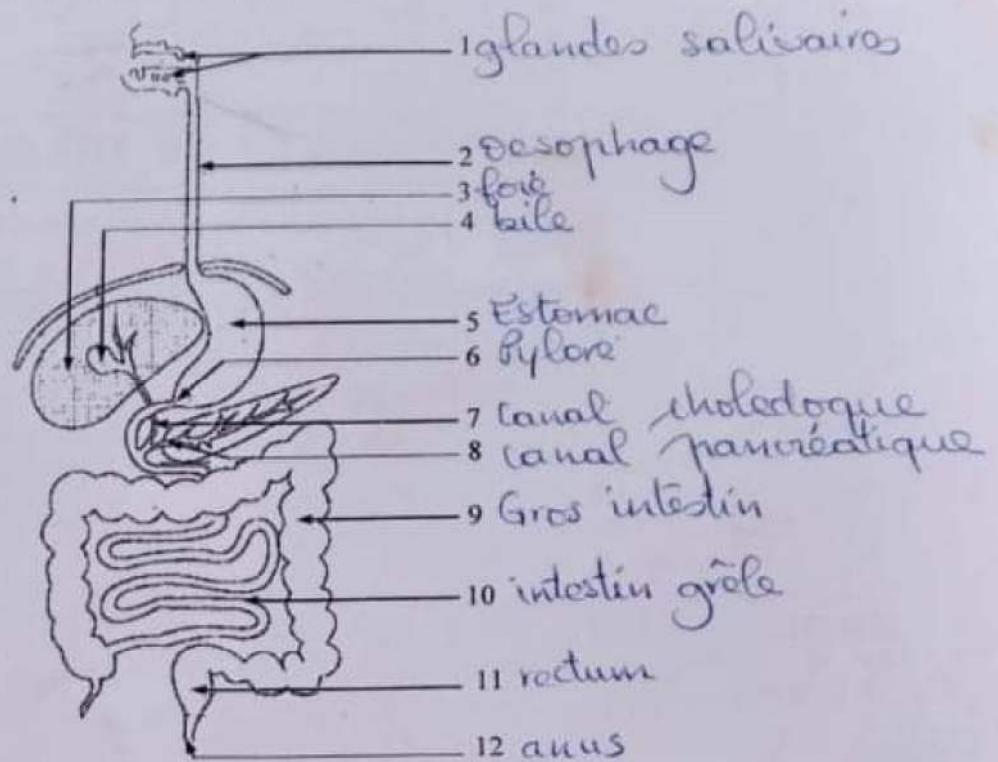 1 glandes salivaires
2 oesophage
3 foie
4 bile
5 Estomac
6 Pylore
7 Canal choledoque
8 Canal pancréatique
9 Gros intestin
10 intestin grêle
11 rectum
12 anus